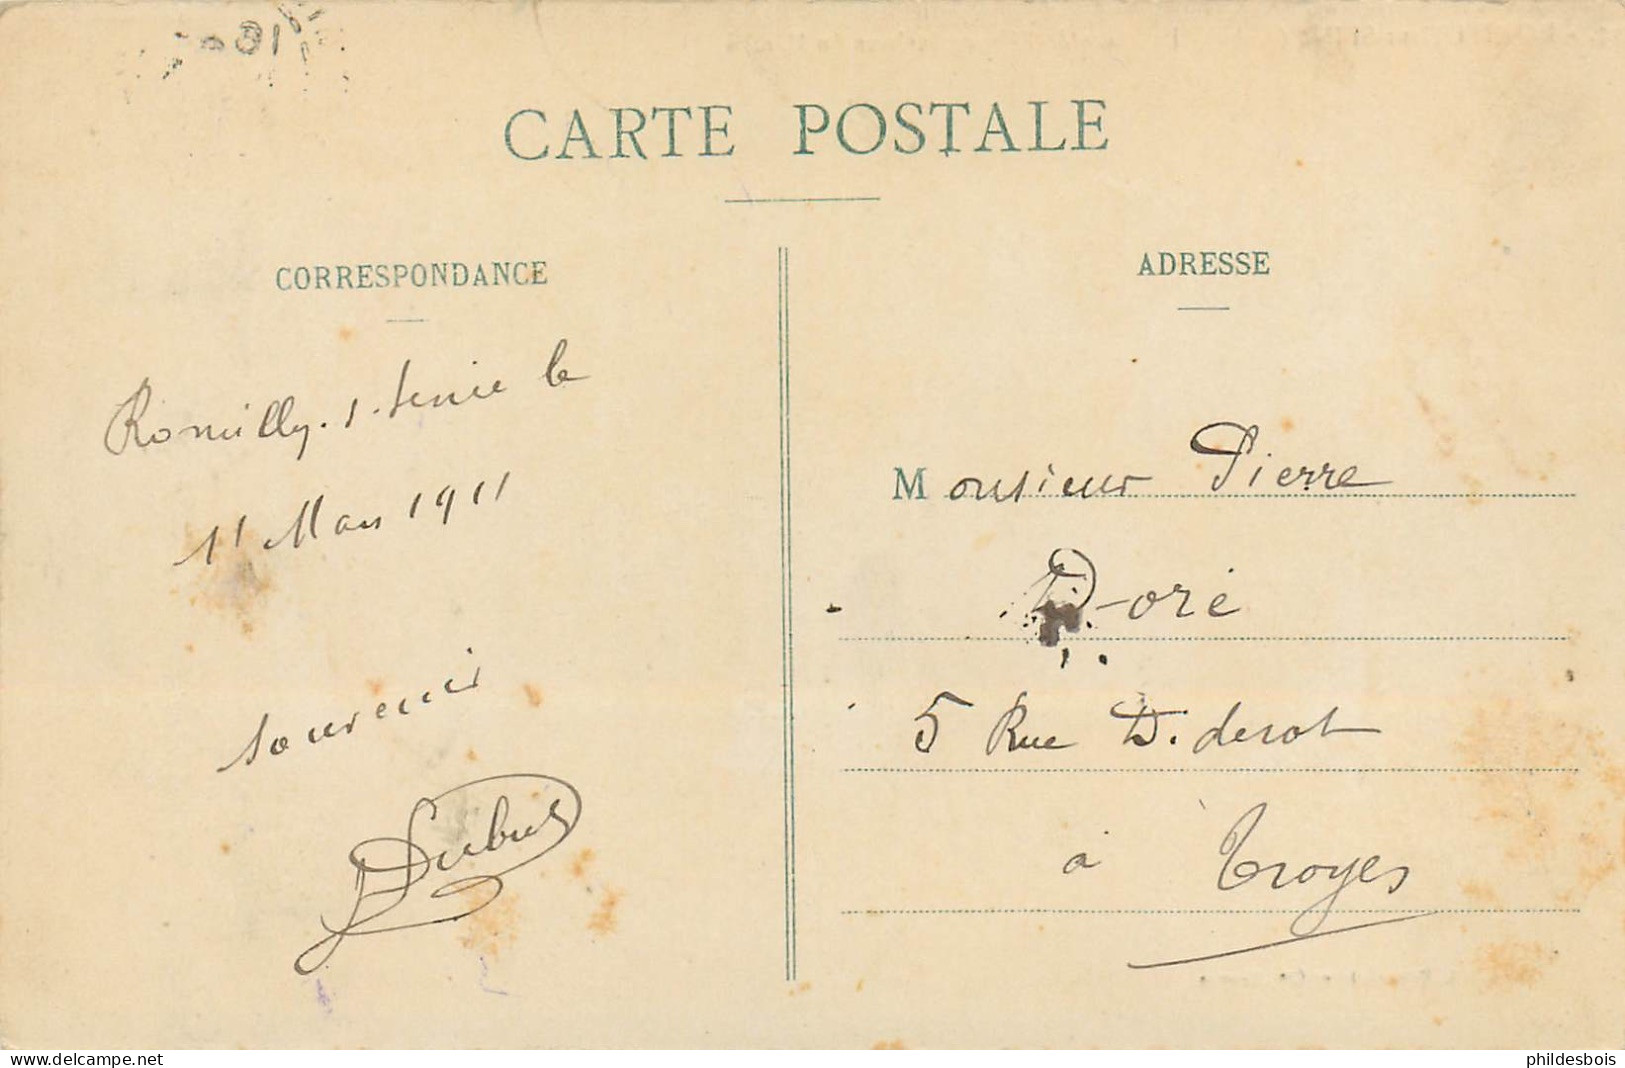 CARTE POSTALE
CORRESPONDANCE
Romilly-s-Seine le
11 Mars 1911
Souvenir
Dubus
ADRESSE
Monsieur Pierre
Doré
5 Rue Diderot
à Troyes
www.delcampe.net
phildesbois